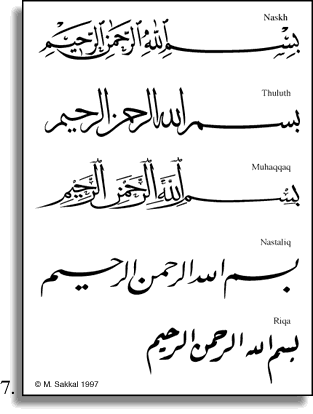 Naskh
بِسْمِ اللهِ الرَّحْمٰنِ الرَّحِيْمِ
Thuluth
بسم الله الرحمن الرحيم
Muhaqqaq
بِسْمِ اللَّهِ الرَّحْمَٰنِ الرَّحِيْمِ
Nastaliq
بسم الله الرحمن الرحيم
Riqa
بسم الله الرحمن الرحيم
7. © M. Sakkal 1997